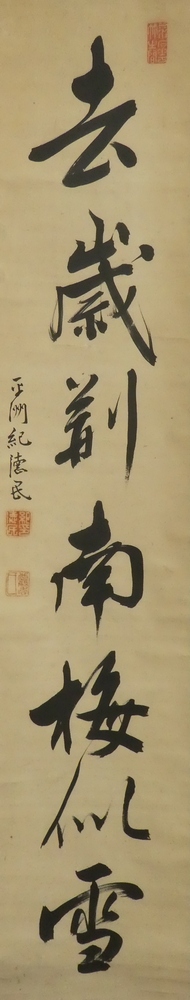 去歲荊南梅似雪
平洲紀德民